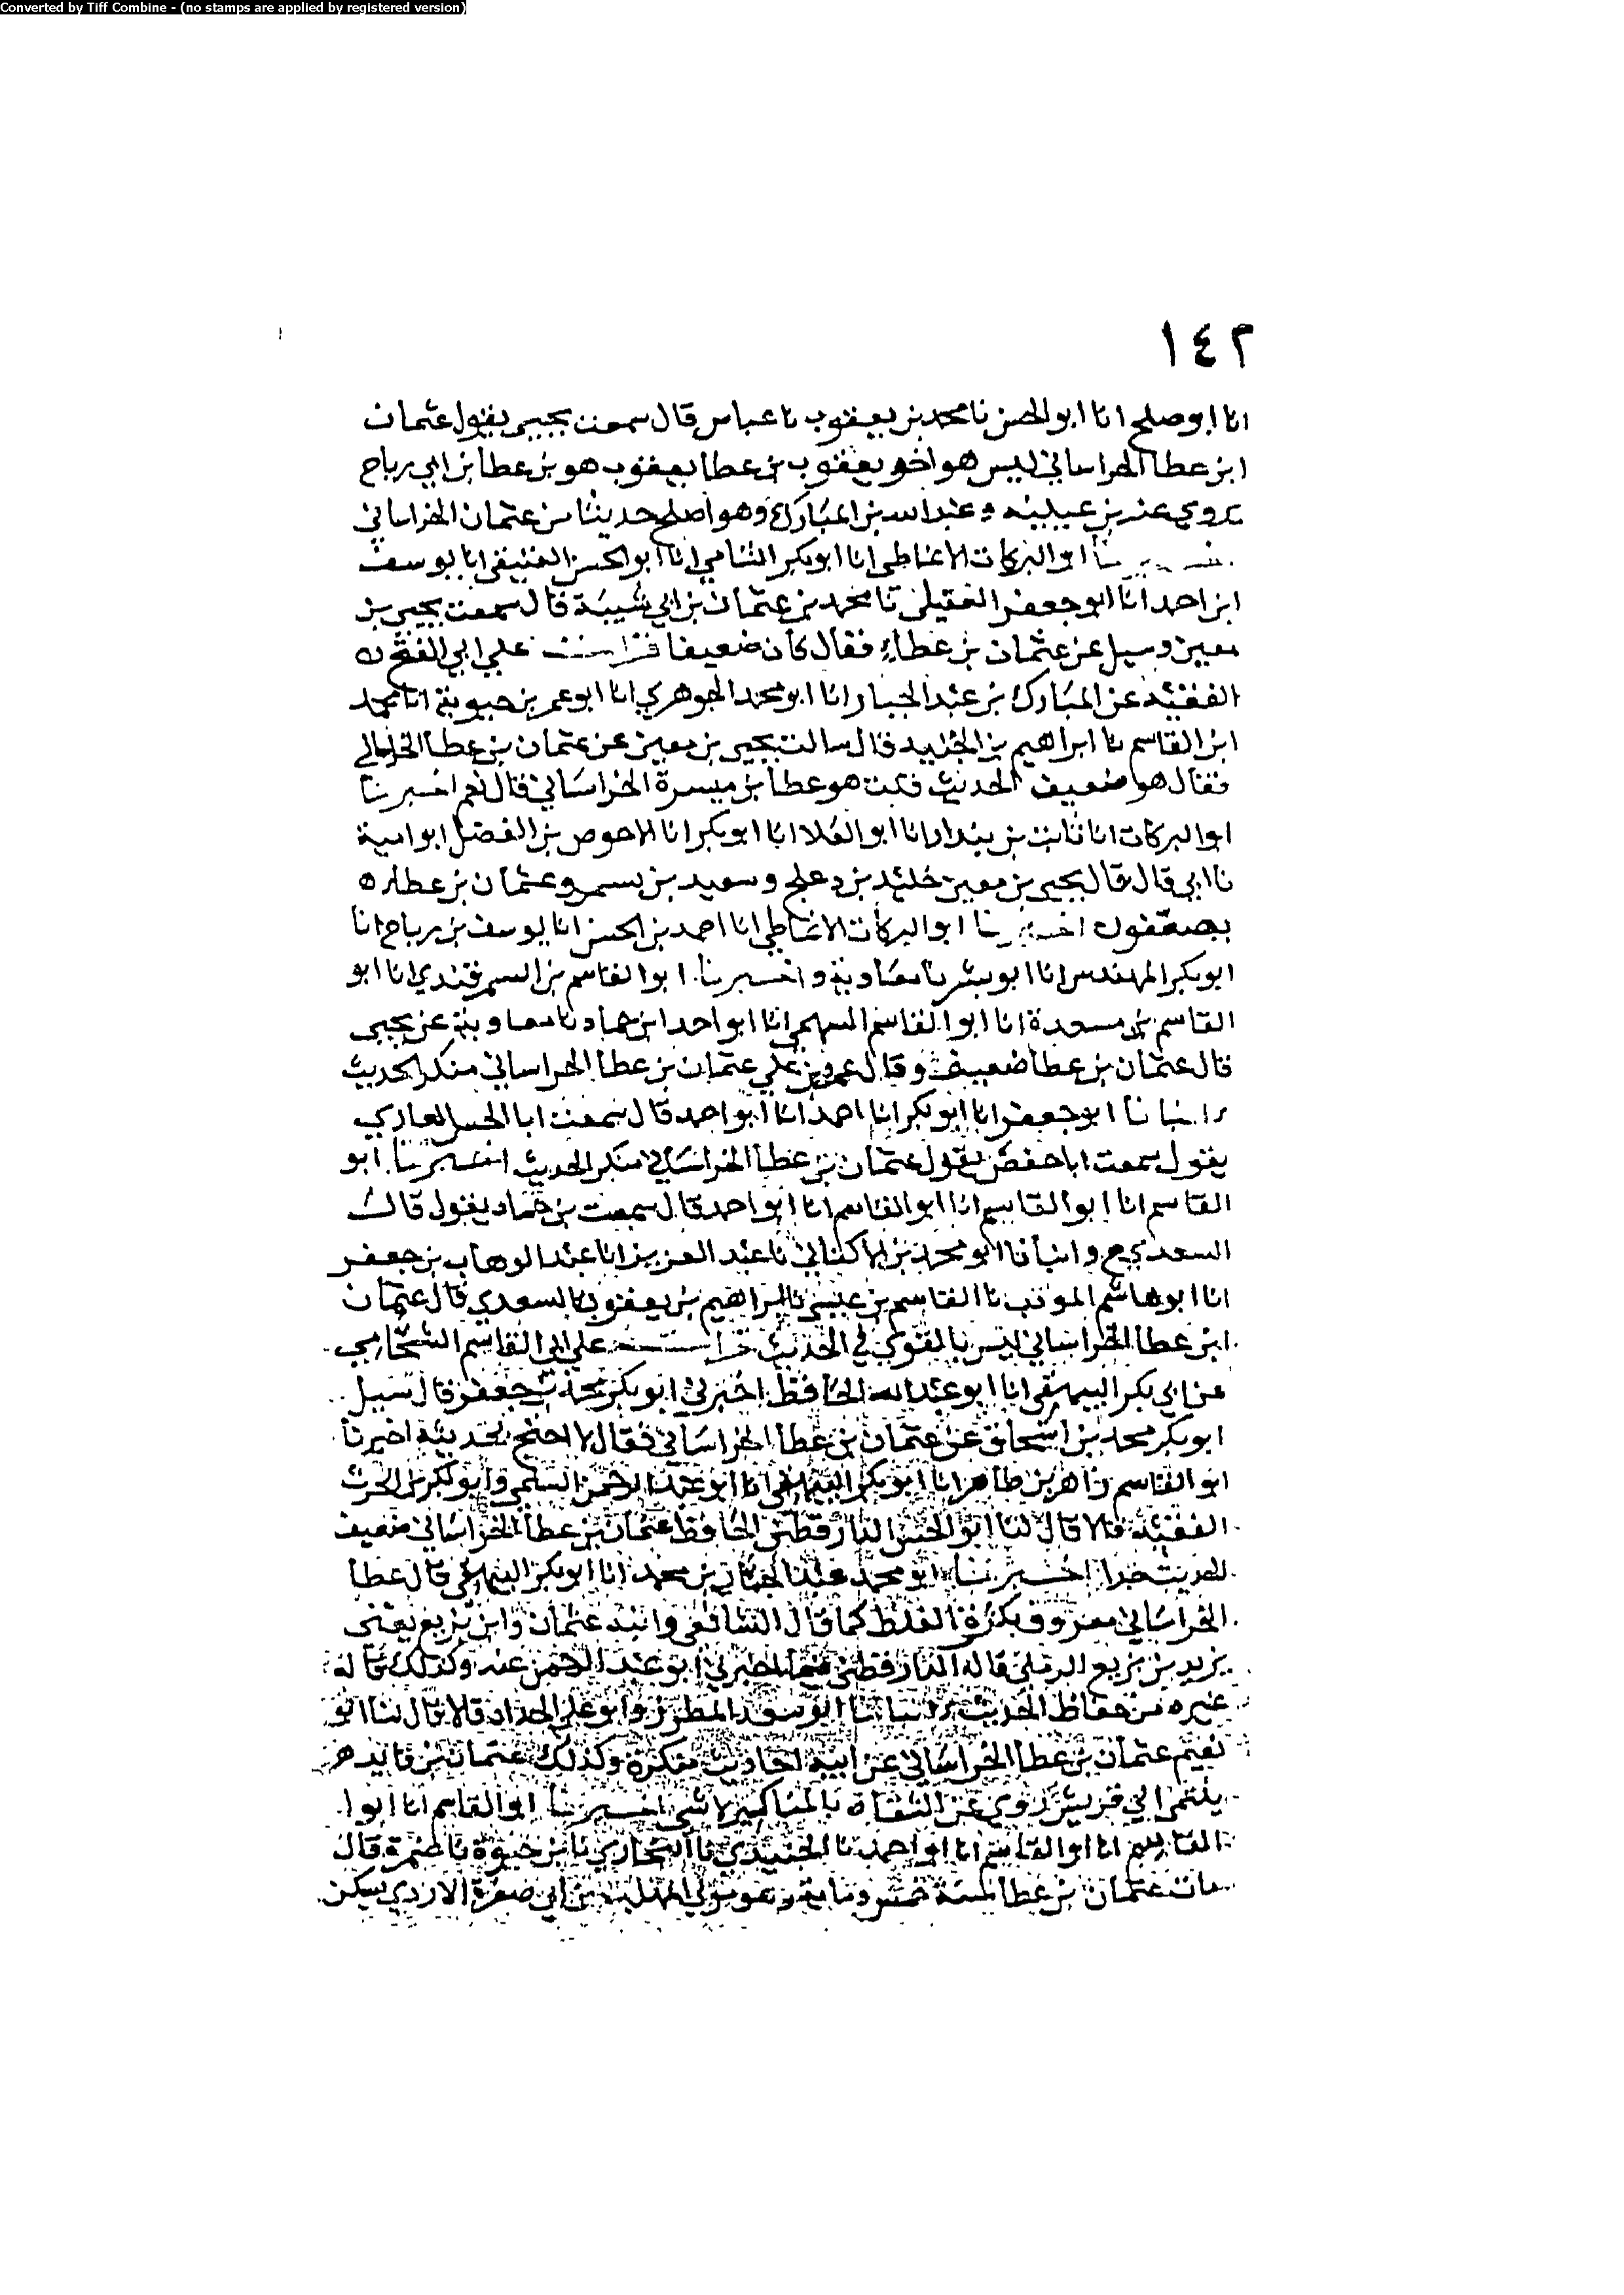 Converted by Tiff Combine - (no stamps are applied by registered version)
١٤٢
انا ابو صلح انا ابو الحسن نا محمد بن يعقوب نا عباس قال سمعت يحيى يقول عثمان
ابن عطا الخراساني ليس هو اخو يعقوب بن عطا يعقوب هو بن عطا بن ابي رباح
يروي عنه بن عيينه و عبد الله بن المبارك وهو اصلح حديثا من عثمان الخراساني
ابو البركات الانماطي انا ابو بكر الشامي انا ابو الحسن العتيقي انا يوسف
ابن احمد انا ابو جعفر العقيلي نا محمد بن عثمان بن ابي شيبة قال سمعت يحيى بن
معين وسيل عن عثمان بن عطاء فقال كان ضعيفا قرات علي ابي الفتح
الفقيه عن المبارك بن عبد الجبار انا ابو محمد الجوهري انا ابو عمر بن حيويه انا محمد
ابن القاسم نا ابراهيم بن الجنيد قال سالت يحيى بن معين عن عثمان بن عطا الخراساني
فقال هو ضعيف الحديث قلت هو عطا بن ميسرة الخراساني قال نعم اخبرنا
ابو البركات انا ثابت بن بندار انا ابو العلا انا ابو بكر انا الاحوص بن الفضل ابو امية
نا ابي قال قال يحيى بن معين خليد بن دعلج وسعيد بن بشير وعثمان بن عطا
يضعفون اخبرنا ابو البركات الانماطي انا احمد بن الحسن انا يوسف بن رباح انا
ابو بكر المهندس انا ابو بشر نا معاوية و اخبرنا ابو القاسم بن السمرقندي انا ابو
القاسم بن مسعدة انا ابو القاسم السهمي انا ابو احمد ابن حماد نا معاوية عن يحيى
قال عثمان بن عطا ضعيف وقال عمرو بن علي عثمان بن عطا الخراساني منكر الحديث
انبانا ابو جعفر انا ابو بكر انا احمد انا ابو احمد قال سمعت ابا الحسن الغازي
يقول سمعت ابا حفص يقول عثمان بن عطا الخراساني منكر الحديث اخبرنا ابو
القاسم انا ابو القاسم انا ابو القاسم انا ابو احمد قال سمعت بن حماد يقول قال
السعدي ح وانبانا ابو محمد بن الاكفاني نا عبد العزيز انا عبد الوهاب بن جعفر
انا ابو هاشم المودب نا القاسم بن عيسى نا ابراهيم بن يعقوب السعدي قال عثمان
ابن عطا الخراساني ليس بالقوي في الحديث قرات علي ابي القاسم الشحامي
عن ابي بكر البيهقي انا ابو عبد الله الحافظ اخبرني ابو بكر محمد بن جعفر قال سيل
ابو بكر محمد بن اسحاق عن عثمان بن عطا الخراساني فقال لا احتج بحديثه اخبرنا
ابو القاسم زاهر بن طاهر انا ابو بكر البيهقي انا ابو عبد الرحمن السلمي وابو بكر بن الحرث
الفقيه قالا قال لنا ابو الحسن الدارقطني الحافظ عثمان بن عطا الخراساني ضعيف
الحديث جدا اخبرنا ابو محمد عبد الجبار بن محمد انا ابو بكر البيهقي قال عطا
الخراساني معروف بكثرة الغلط كما قال الشافعي وابنه عثمان وابن بزيع يعني
يزيد بن بزيع الرملي قاله الدارقطني فيما اخبرني ابو عبد الرحمن عنه وكذلك قاله
غيره من حفاظ الحديث انبانا ابو سعد المطرز وابو علي الحداد قالا قال لنا ابو
نعيم عثمان بن عطا الخراساني عن ابيه احاديث منكرة وكذلك عثمان بن فايد
ينتمي الي قريش روي عن الثقاة بالمناكير لا شي اخبرنا ابو القاسم انا ابو
القاسم انا ابو القاسم انا ابو احمد نا الجنيدي نا البخاري نا بن حيوة نا ضمرة قال
مات عثمان بن عطا سنة خمس ومايه وهو مولي المهلب بن ابي صفرة الازدي يسكن